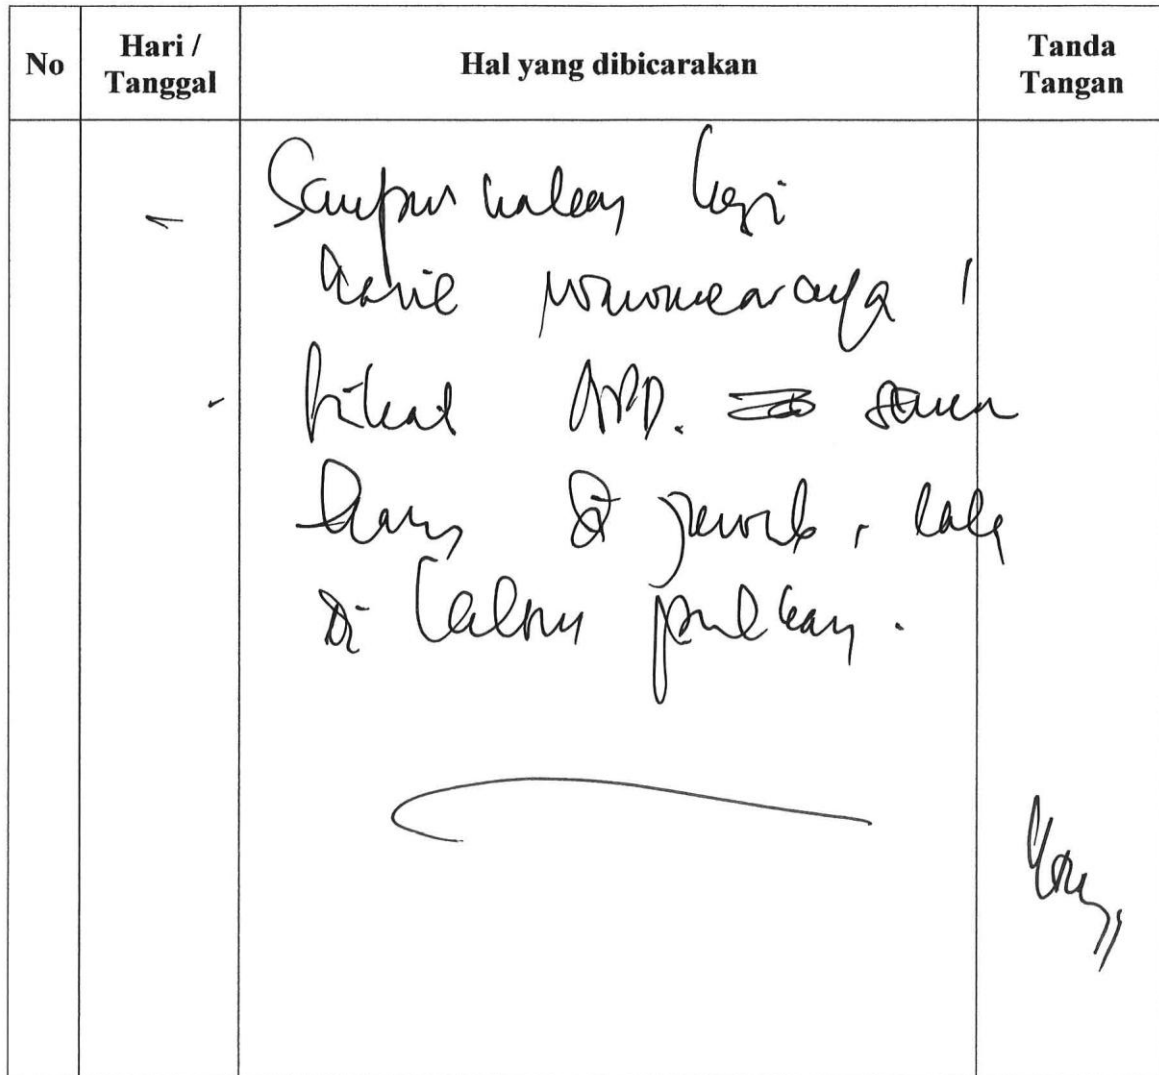 No
Hari /
Tanggal
Hal yang dibicarakan
Tanda
Tangan
Sempurnakan lagi
hasil wawancaranya !
lihat APD. semua
harus di jawab, lalu
di kesimpulkan.